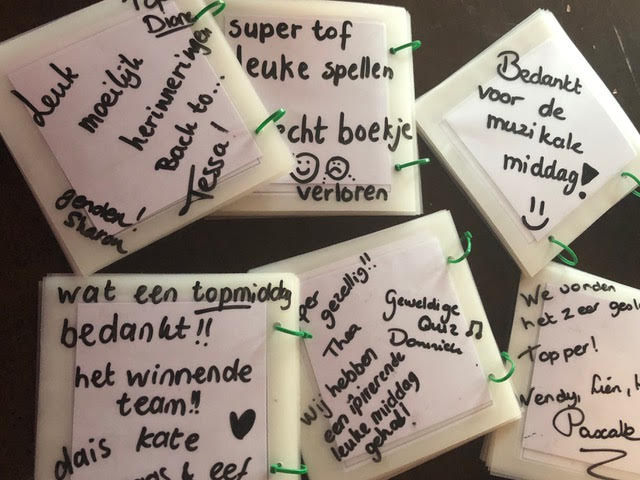 Top
Diane
Leuk
moeilijk
herinneringen
Back to...
Tessa!
genoten!
Sharon
super tof
leuke spellen
echt boekje
verloren
Bedankt
voor de
muzikale
middag!
wat een topmiddag
bedankt!!
het winnende
team!!
dais kate
& eef
gezellig!!
Thea
Geweldige
Quiz
Dominiek
wij hebben
een ipirerende
leuke middag
gehad!
We vonden
het zeer
Topper!
Wendy, Lien,
Pascale